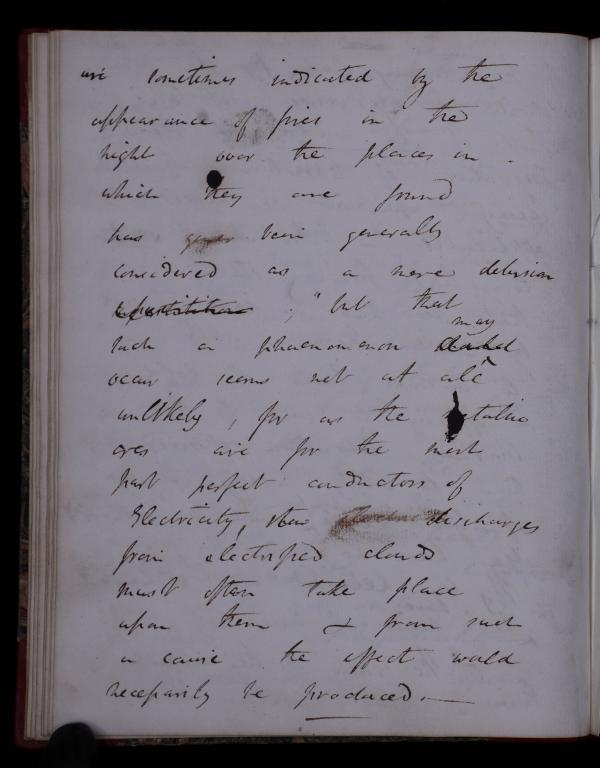 are sometimes indicated by the
appearance of fires in the
night over the places in
which they are found
has been generally
considered as a mere delusion
superstition ; " but that
may
such a phaenomenon
occur seems not at all
unlikely, for as the metallic
ores are for the most
part perfect conductors of
Electricity, slow discharges
from electrified clouds
must often take place
upon them & from such
a cause the effect would
necessarily be produced. —